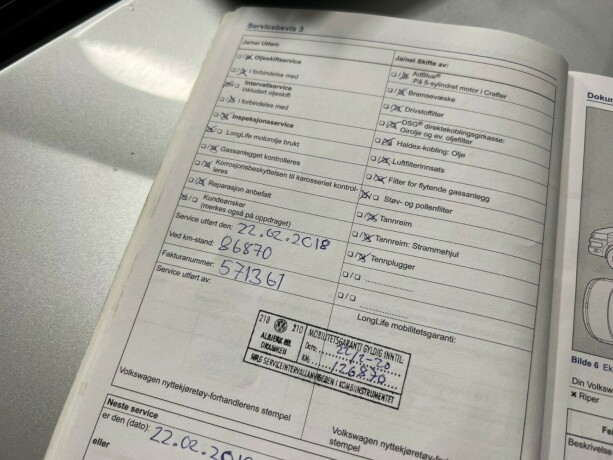 Servicebevis 3
Ja/nei Utført:
Oljeskiftservice
I forbindelse med
Intervallservice
inkludert oljeskift
I forbindelse med
Inspeksjonsservice
LongLife motorolje brukt
Gassanlegget kontrolleres
Korrosjonsbeskyttelsen til karosseriet kontrol-
leres
Reparasjon anbefalt
Kundeønsker
(merkes også på oppdraget)
Service utført den: 22.02.2018
Ved km-stand: 86870
Fakturanummer: 571361
Service utført av:
Ja/nei Skifte av:
AdBlue®
På 5-sylindret motor i Crafter
Bremsevæske
Drivstoffilter
DSG® direktekoblingsgirkasse:
Girolje og ev. oljefilter
Haldex-kobling: Olje
Luftfilterinnsats
Filter for flytende gassanlegg
Støv- og pollenfilter
Tannreim
Tannreim: Strammehjul
Tennplugger
LongLife mobilitetsgaranti:
218 210
DRAMMEN
MOBILITETSGARANTI GYLDIG INNTIL:
Dato:
KM: 126870
Volkswagen nyttekjøretøy-forhandlerens
stempel
Volkswagen nyttekjøretøy-
stempel
Neste service
er den (dato): 22.02.20
eller
Bilde 6
Din Volks
Riper
Beskrivels